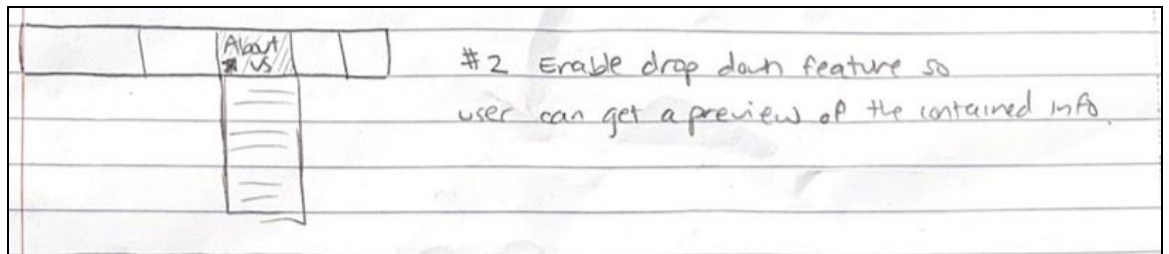 About
US
#2 Enable drop down feature so
user can get a preview of the contained info.